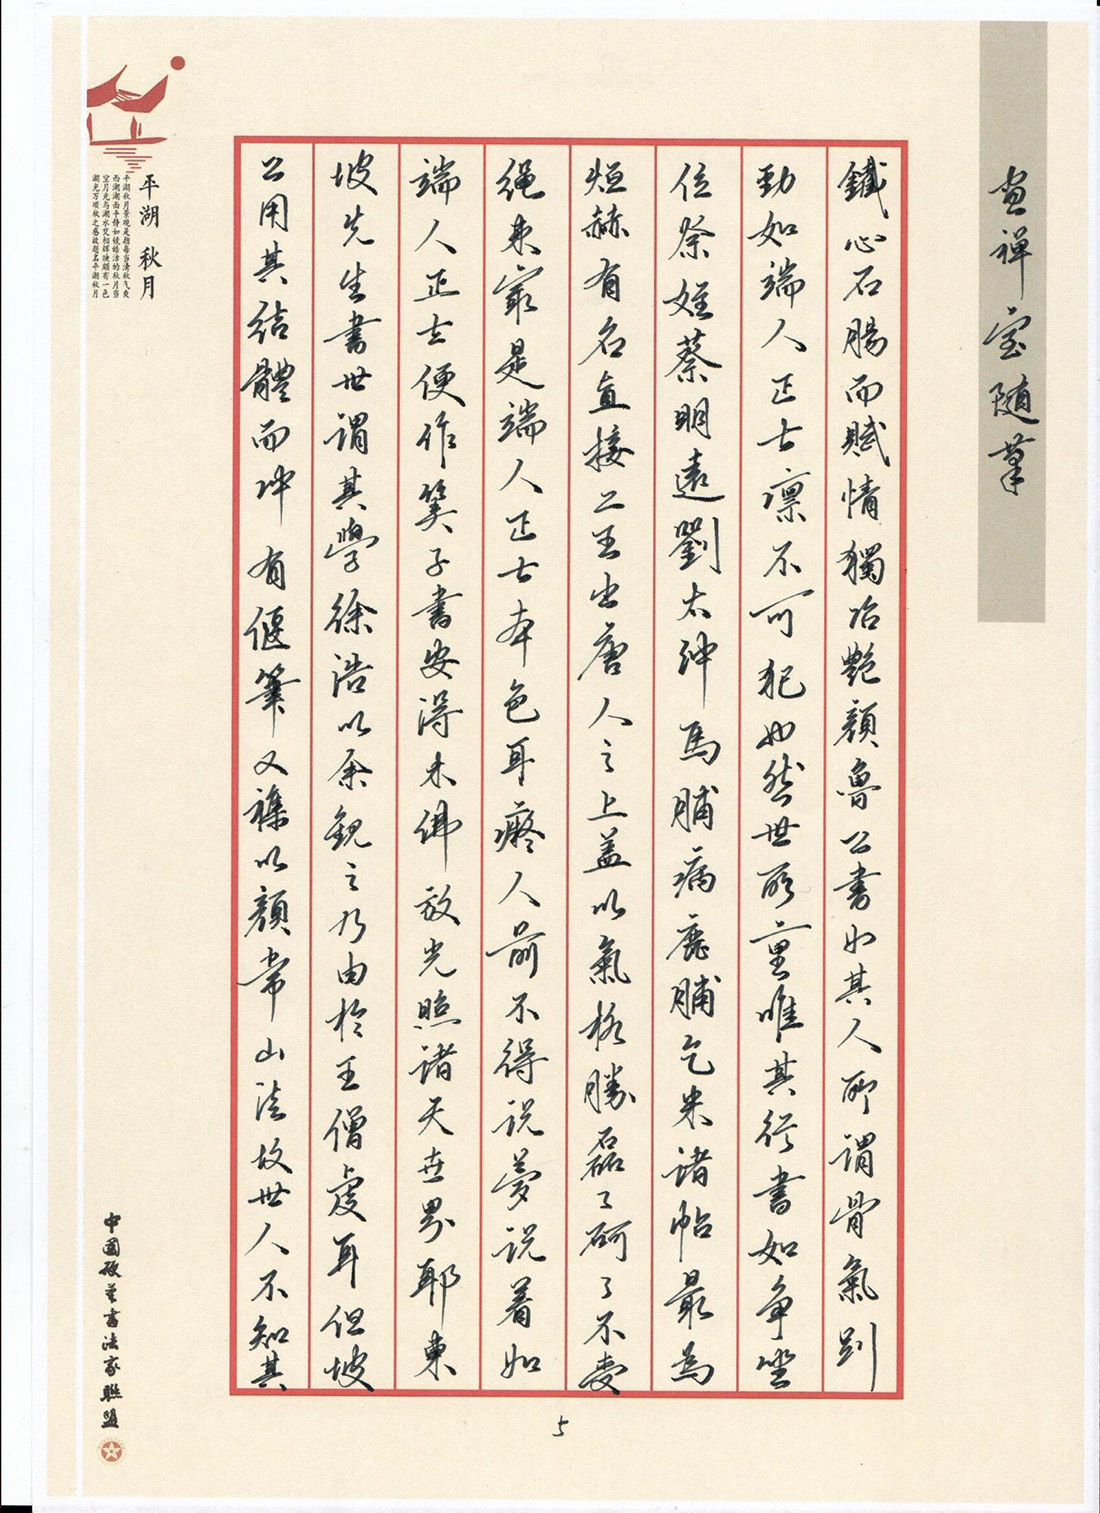 画禅室随笔
鐵心石腸而賦情獨冶艶顏魯公書如其人所謂骨氣剛
勁如端人正士凛不可犯也然世所重唯其行書如争坐
位祭姪蔡明遠劉太沖馬脯病鹿脯乞米諸帖最為
烜赫有名直接二王出唐人之上盖以氣格勝磊々砢々不受
绳束寔是端人正士本色耳癡人前不得说夢说着如
端人正士便作筭子書安得木佛放光照諸天世界耶東
坡先生書世謂其學徐浩以余觀之乃由於王僧虔耳但坡
公用其结體而中有偃筆又襍以顏常山法故世人不知其
5
平湖 秋月
平湖秋月景观是指每当清秋气爽
西湖湖面平静如镜皓洁的秋月当
空月光与湖水交相辉映颇有一色
湖光万顷秋之感故题名平湖秋月
中國硬筆書法家聯盟